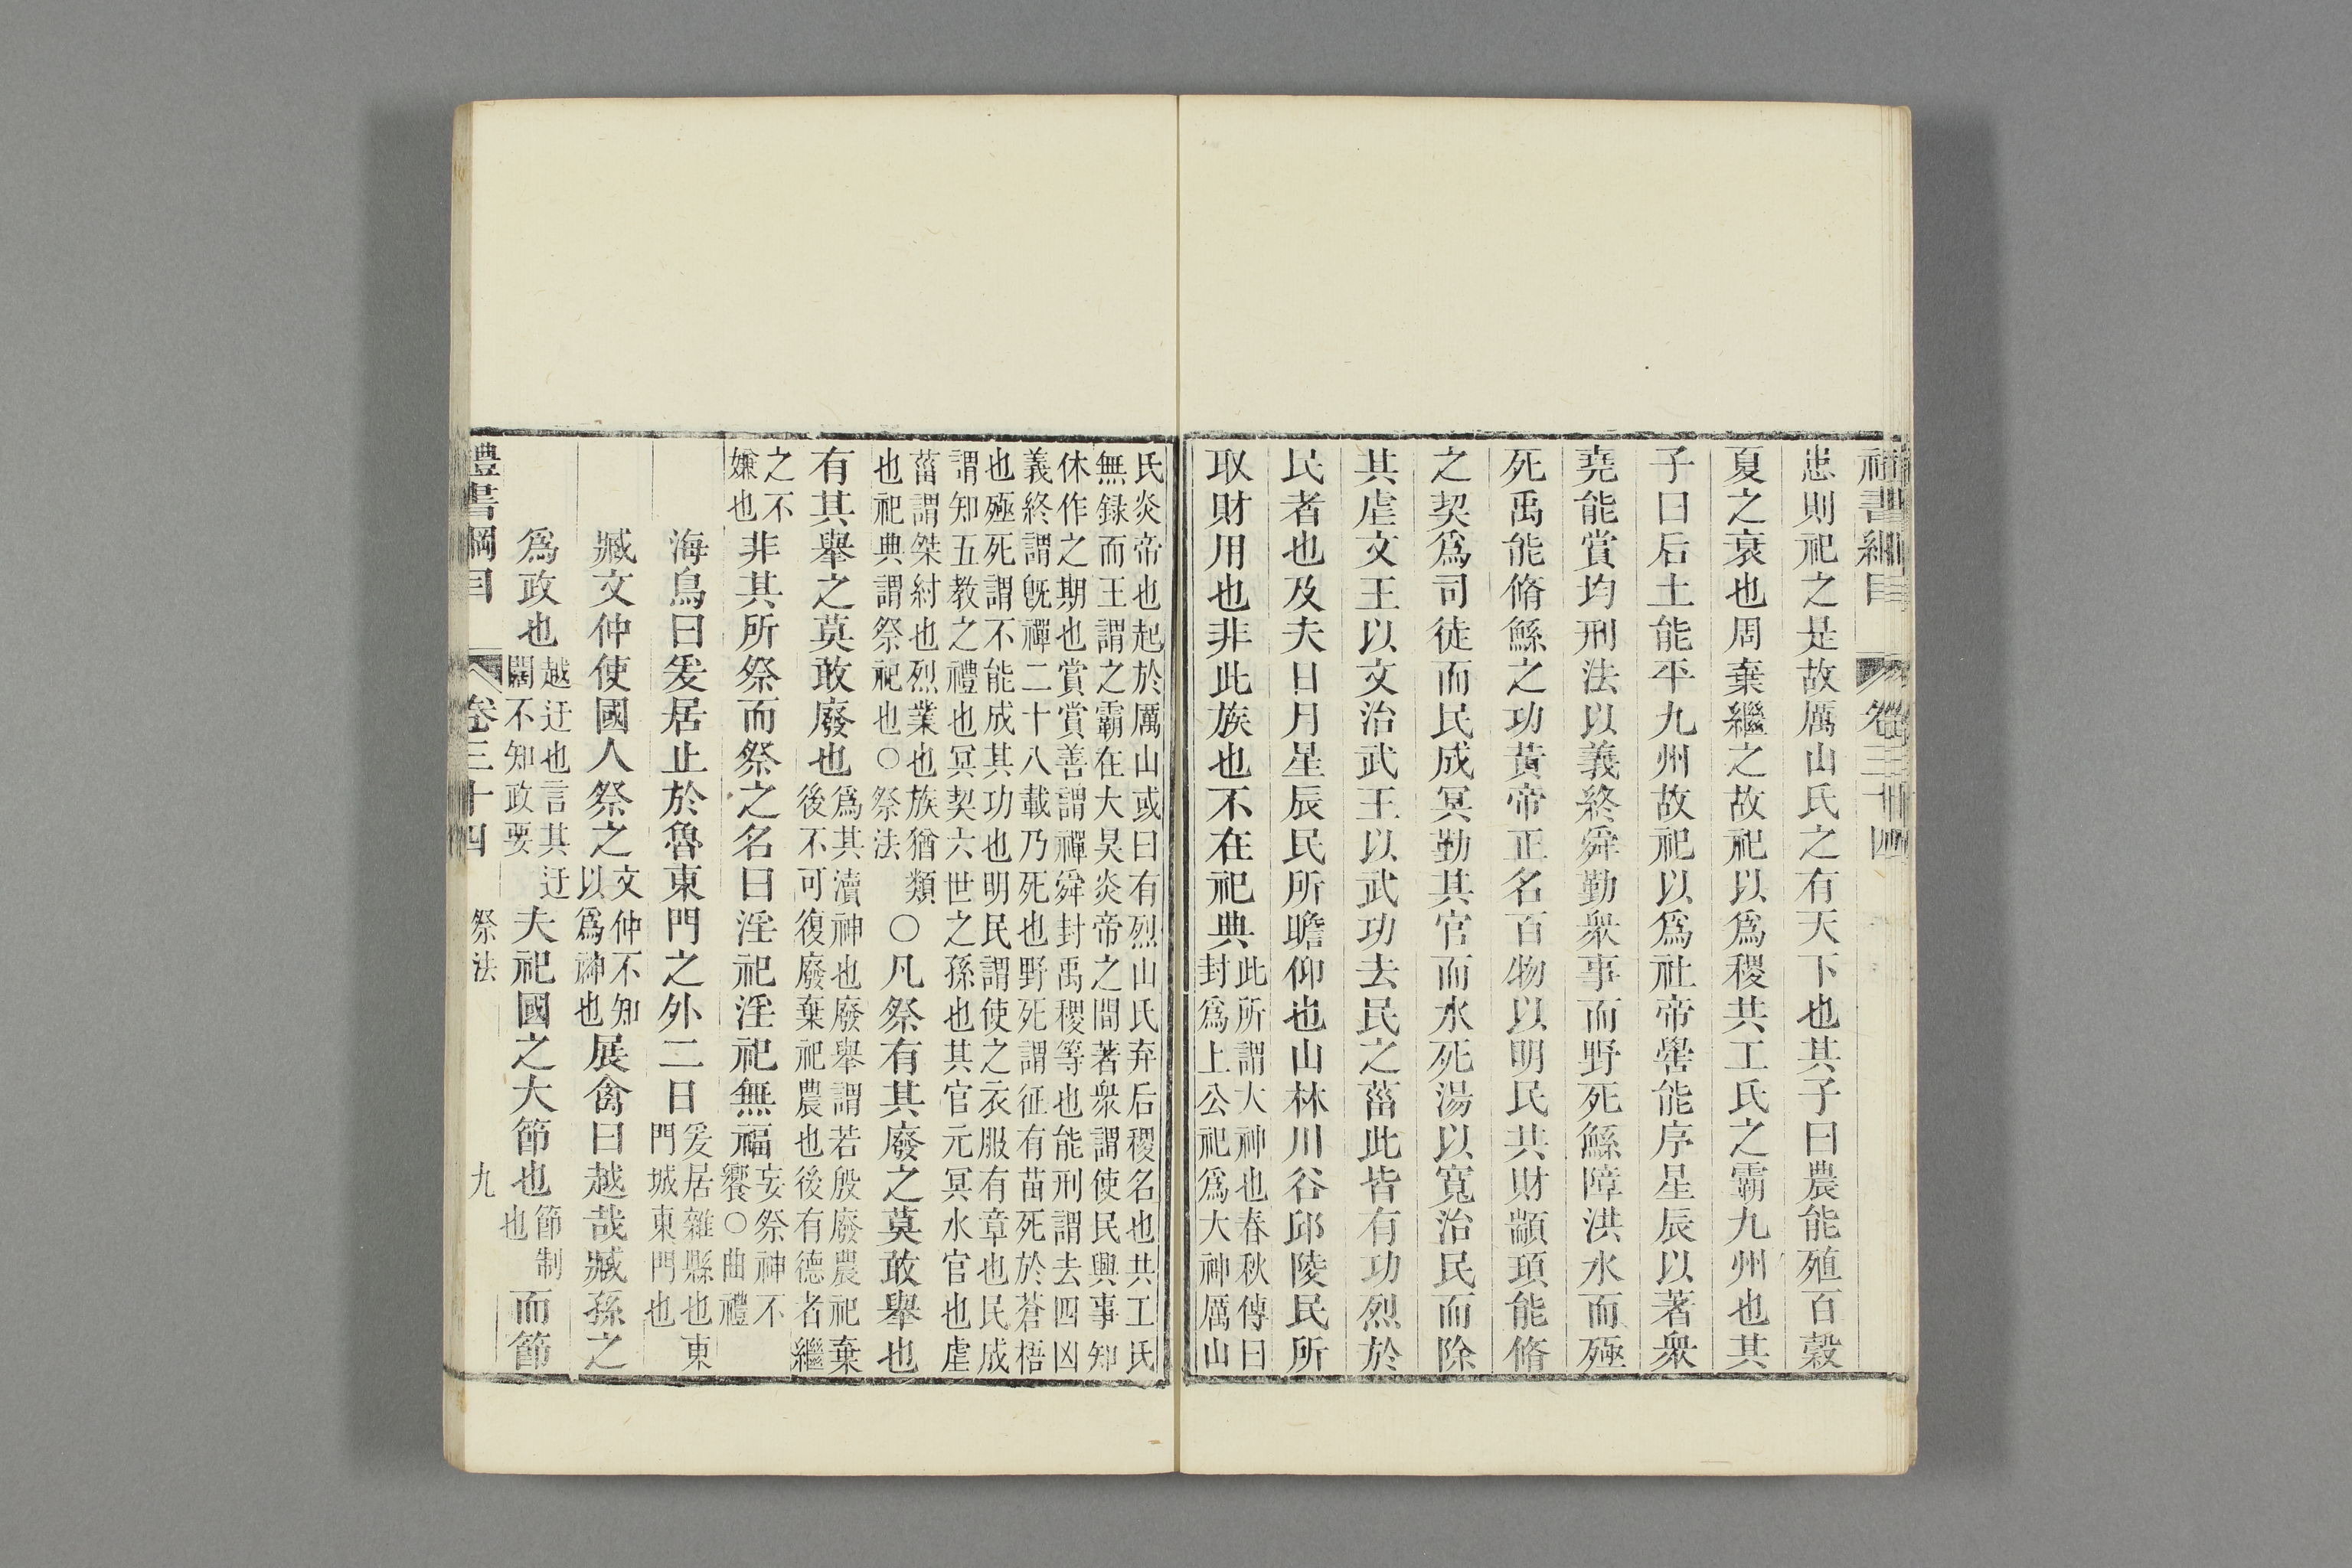 禮書綱目 卷三十四
患則祀之是故厲山氏之有天下也其子曰農能殖百穀
夏之衰也周棄繼之故祀以爲稷共工氏之霸九州也其
子曰后土能平九州故祀以爲社帝嚳能序星辰以著衆
堯能賞均刑法以義終舜勤衆事而野死鯀障洪水而殛
死禹能脩鯀之功黃帝正名百物以明民共財顓頊能脩
之契爲司徒而民成冥勤其官而水死湯以寬治民而除
其虐文王以文治武王以武功去民之菑此皆有功烈於
民者也及夫日月星辰民所瞻仰也山林川谷邱陵民所
取財用也非此族也不在祀典此所謂大神也春秋傳曰
封爲上公祀爲大神厲山
氏炎帝也起於厲山或曰有烈山氏弃后稷名也共工氏
無録而王謂之霸在大昊炎帝之間著衆謂使民興事知
休作之期也賞賞善謂禪舜封禹稷等也能刑謂去四凶
義終謂旣禪二十八載乃死也野死謂征有苗死於蒼梧
也殛死謂不能成其功也明民謂使之衣服有章也民成
謂知五教之禮也冥契六世之孫也其官元冥水官也虐
菑謂桀紂也烈業也族猶類
也祀典謂祭祀也○祭法
○凡祭有其廢之莫敢舉也
有其舉之莫敢廢也爲其瀆神也廢舉謂若殷廢農祀棄
後不可復廢棄祀農也後有德者繼
之不
嫌也
非其所祭而祭之名曰淫祀淫祀無福妄祭神不
饗○曲禮
海鳥曰爰居止於魯東門之外二日爰居雜縣也東
門城東門也
臧文仲使國人祭之文仲不知
以爲神也
展禽曰越哉臧孫之
爲政也越迂也言其迂
闊不知政要
夫祀國之大節也節制
也
而節
禮書綱目 卷三十四 祭法 九